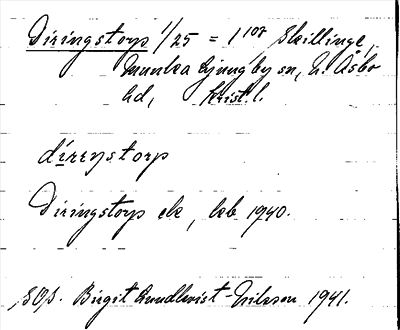 Diringstorp 1/25 = 1¹⁰⁸ Skillinge,
Munka Ljungby sn, N. Åsbo
hd, Krist. l.
dirrŋstorp
Diringstorp ek, lkb 1940.
SOA. Birgit Lundkvist-Nilsson 1941.